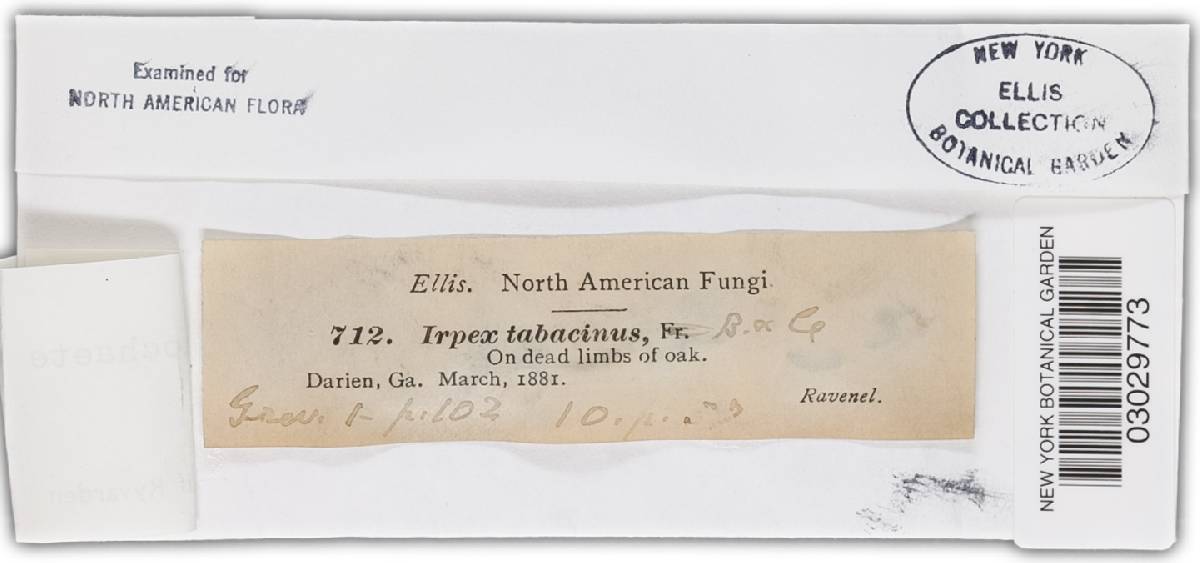 Examined for
NORTH AMERICAN FLORA
NEW YORK
ELLIS
COLLECTION
BOTANICAL GARDEN
Ellis. North American Fungi.
712. Irpex tabacinus, Fr. B. & C
On dead limbs of oak.
Darien, Ga. March, 1881.
Ravenel.
Grev. 1- p. 102 10. p.
NEW YORK BOTANICAL GARDEN
03029773